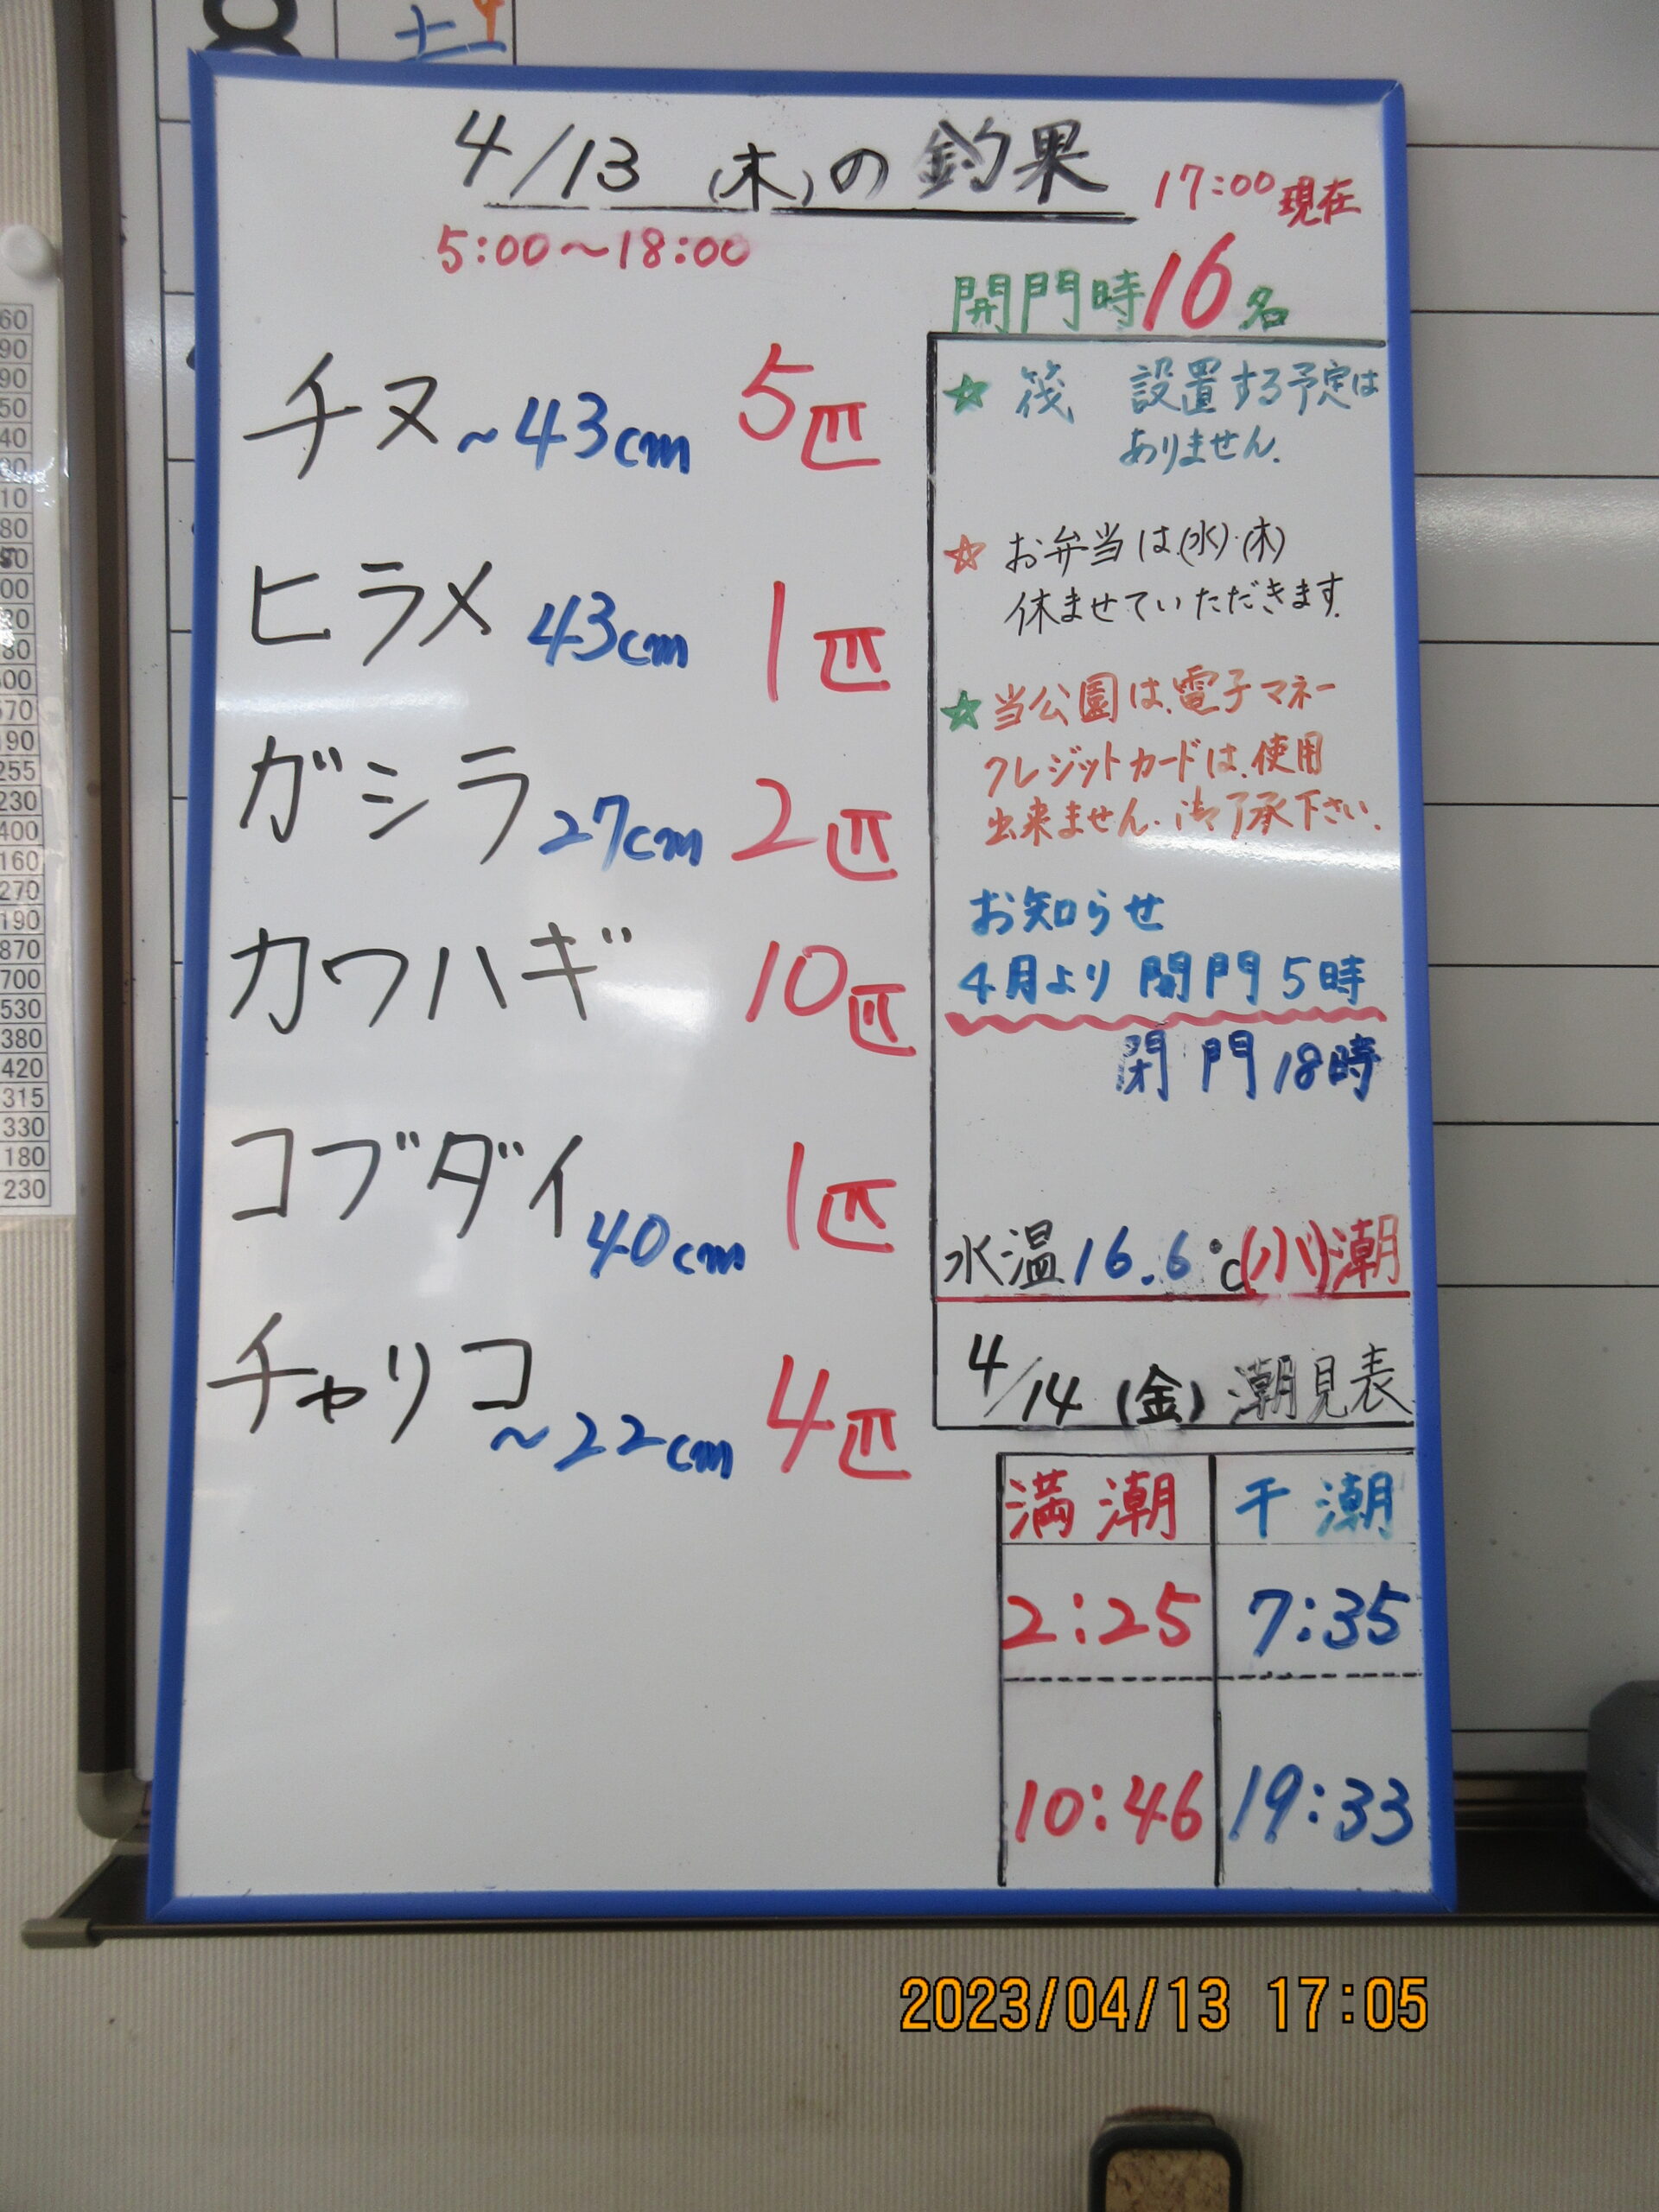 土
4/13 (木)の釣果
17:00現在
5:00～18:00
開門時16名
チヌ～43cm 5匹
ヒラメ 43cm 1匹
ガシラ 27cm 2匹
カワハギ 10匹
コブダイ 40cm 1匹
チャリコ ～22cm 4匹
☆ 筏 設置する予定は
ありません.
☆ お弁当は(水)・(木)
休ませていただきます.
☆ 当公園は、電子マネー
クレジットカードは、使用
出来ません. 御了承下さい.
お知らせ
4月より 開門 5時
閉門 18時
水温 16.6℃ (小)潮
4/14 (金) 潮見表
満潮 干潮
2:25 7:35
10:46 19:33
2023/04/13 17:05
60
90
90
50
40
10
80
00
80
190
255
230
400
160
270
190
870
700
530
380
420
315
330
180
230